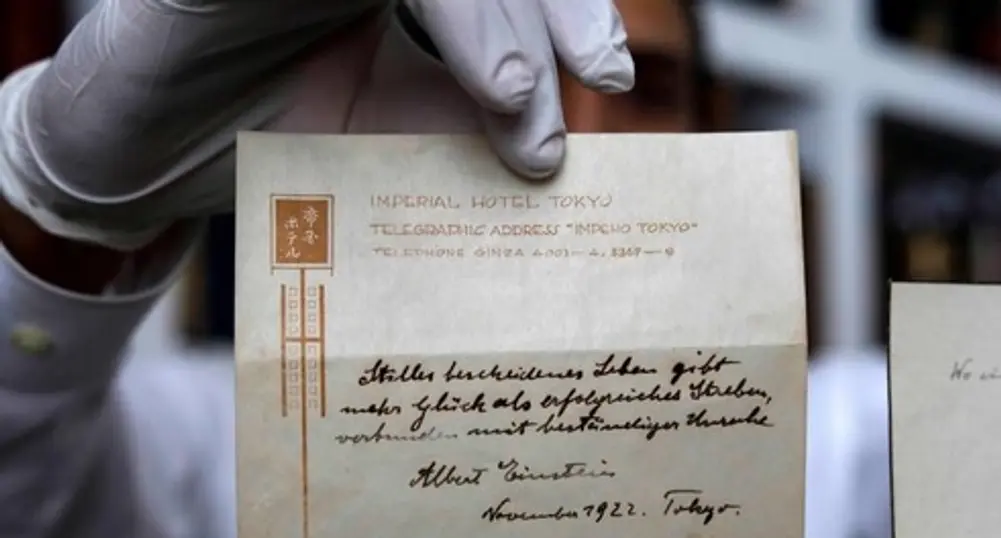 帝国
ホテル
IMPERIAL HOTEL TOKYO
TELEGRAPHIC ADDRESS "IMPEHO TOKYO"
TELEPHONE GINZA
Stilles bescheidenes Leben gibt
mehr Glück als erfolgreiches Streben,
verbunden mit beständiger Unruhe
Albert Einstein
November 1922. Tokyo.
Wo ein